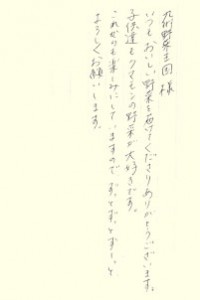 九州野菜王国 様
いつもおいしい野菜を届けてくださりありがとうございます。
子供達もクマモンの野菜が大好きです。
これからも楽しみにしていますので
よろしくお願いします。